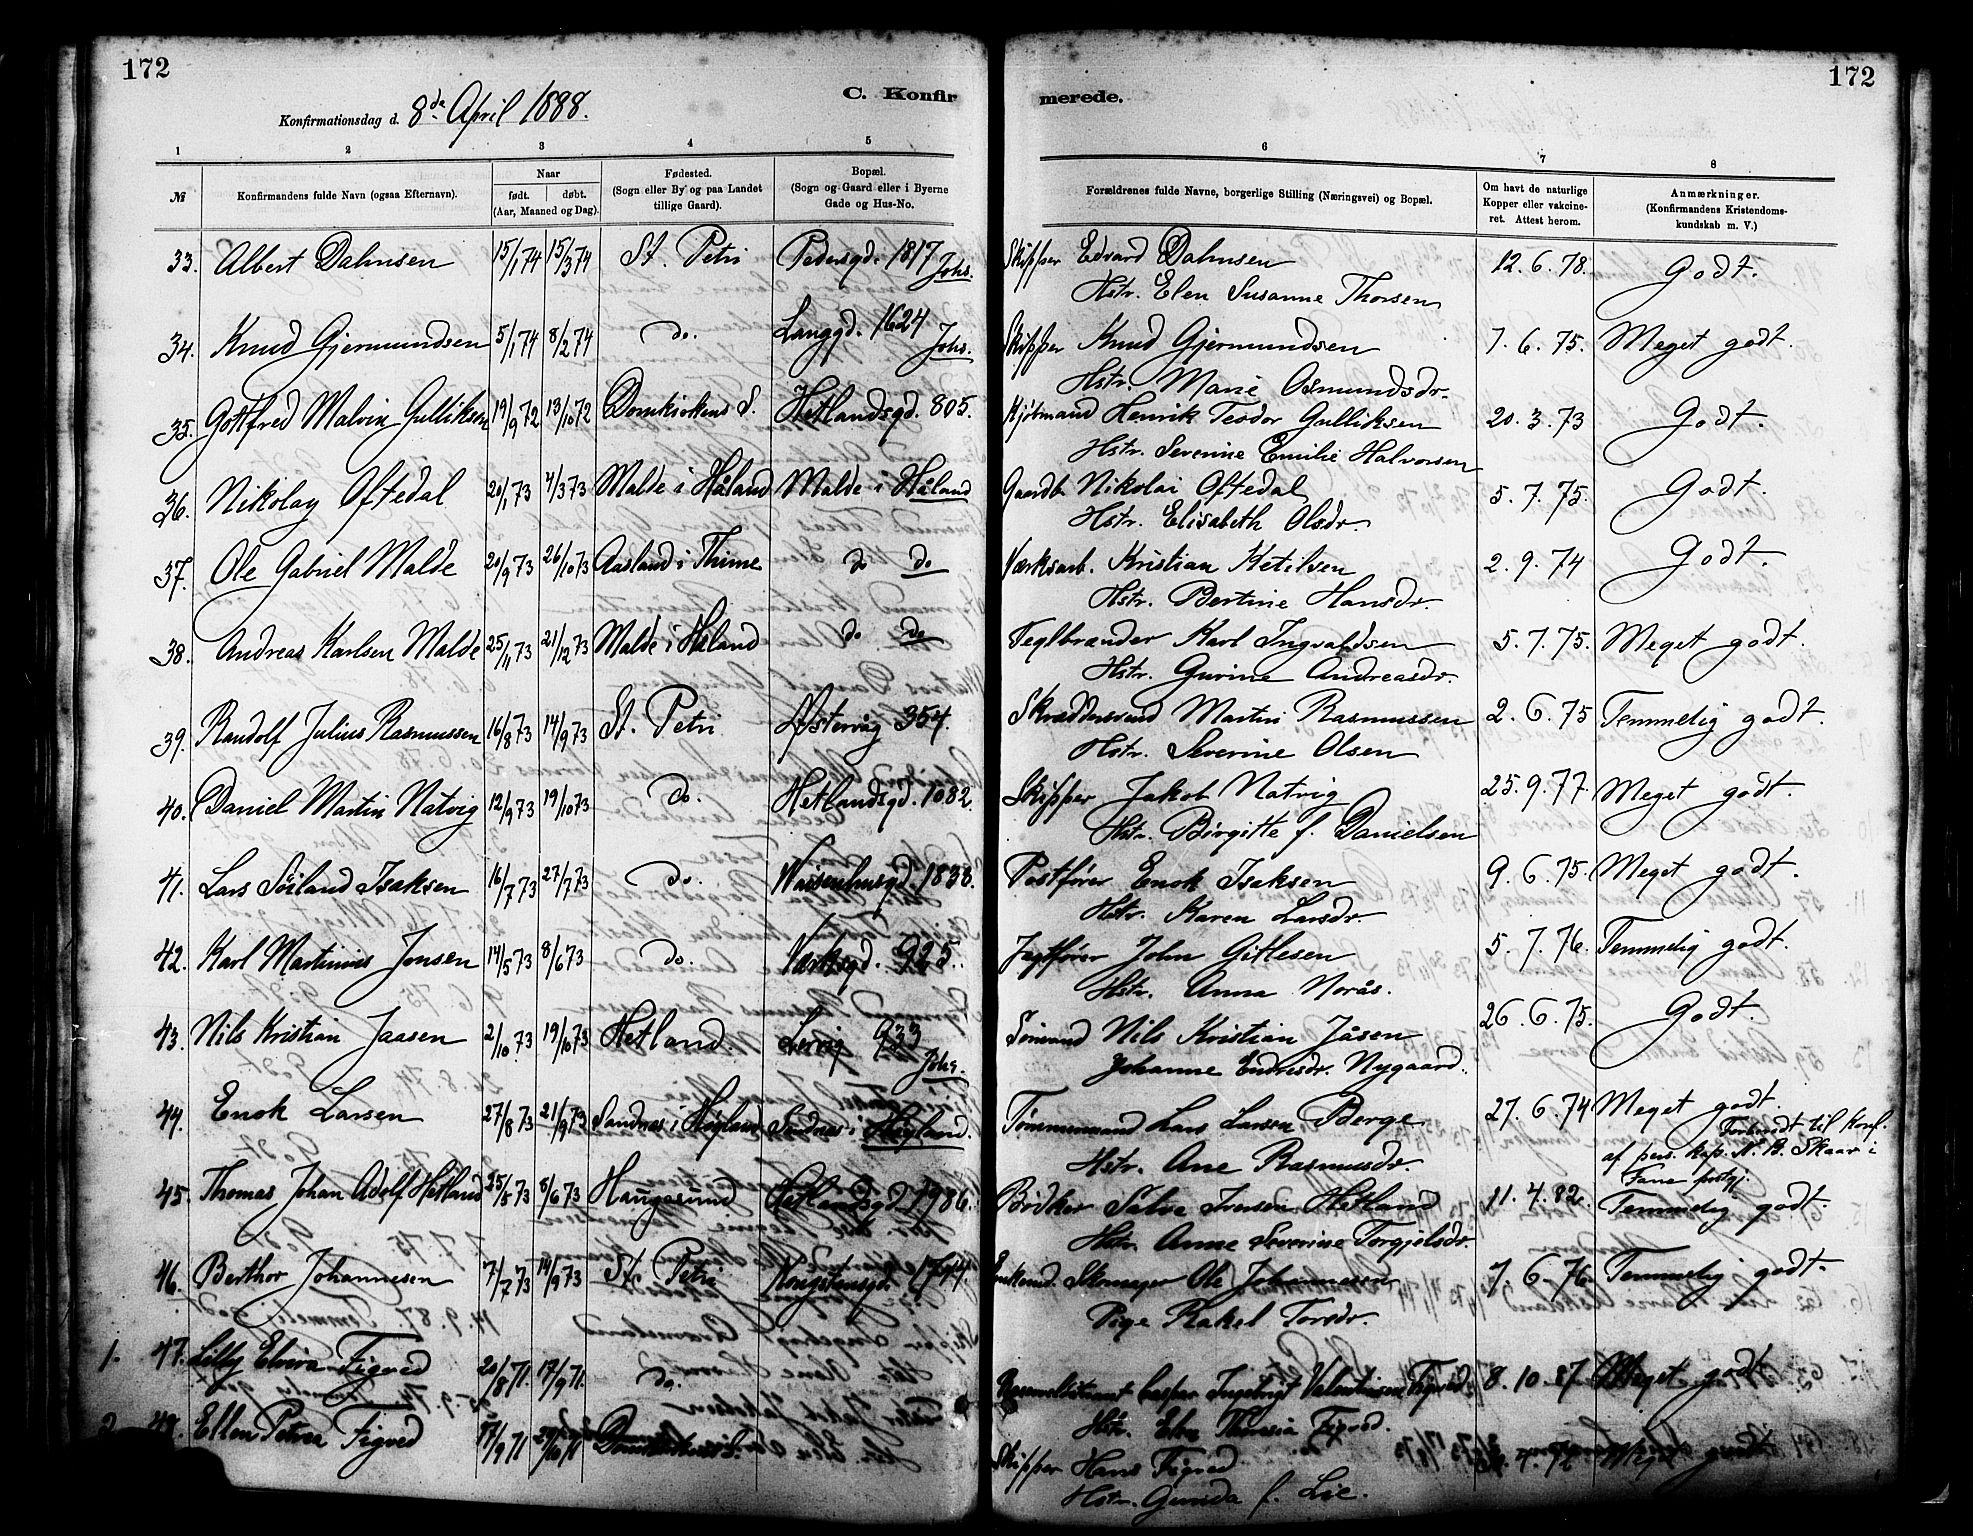 172
172
C. Konfir
merede.
Konfirmationsdag d. 8de April 1888.
1 2 3 4 5 6 7 8
№ Konfirmandens fulde Navn (ogsaa Efternavn). Naar født. døbt. (Aar, Maaned og Dag). Fødested. (Sogn eller By og paa Landet tillige Gaard). Bopæl. (Sogn og Gaard eller i Byerne Gade og Hus-No. Forældrenes fulde Navne, borgerlige Stilling (Næringsvei) og Bopæl. Om havt de naturlige Kopper eller vakcineret. Attest herom. Anmærkninger. (Konfirmandens Kristendomskundskab m. V.)
33. Albert Dahnsen 15/1 74 15/3 74 St. Petri Pedersgd. 1817 Johs. Skipper Edvard Dahnsen 12.6.78. Godt.
Hstr. Elen Susanne Thorsen
34. Knud Gjermundsen 5/1 74 8/2 74 do. Langgd. 1624 Johs. Skipper Knud Gjermundsen 7.6.75. Meget godt.
Hstr. Marie Osmundsdr.
35. Gottfred Malvin Gulliksen 19/9 72 13/10 72 Domkirkens S. Hetlandsgd. 805. Kjøbmand Henrik Teodor Gulliksen 20.3.73 Godt.
Hstr. Severine Emilie Halvorsen
36. Nikolay Oftedal 20/1 73 4/3 73 Malde i Håland Malde i Håland Gaardb. Nikolai Oftedal 5.7.75. Godt.
Hstr. Elisabeth Olsdr.
37. Ole Gabriel Malde 20/9 73 26/10 73 Aasland i Thime do do Værksarb. Kristian Ketilsen 2.9.74 Godt.
Hstr. Bertine Hansdr.
38. Andreas Karlsen Malde 25/11 73 21/12 73 Malde i Håland do do Teglbrænder Karl Ingvaldsen 5.7.75. Meget godt.
Hstr. Gurine Andreasdr.
39. Randolf Julius Rasmussen 16/8 73 14/9 73 St. Petri Østervåg 354. Skræddersvend Martin Rasmussen 2.6.75 Temmelig godt.
Hstr. Severine Olsen
40. Daniel Martin Natvig 12/9 73 19/10 73 do. Hetlandsgd. 1082. Skipper Jakob Natvig 25.9.77. Meget godt.
Hstr. Birgitte f. Danielsen
41. Lars Søiland Isaksen 16/7 73 27/7 73 do. Waisenhusgd. 1838. Postfører Enok Isaksen 9.6.75. Meget godt.
Hstr. Karen Larsdr.
42. Karl Martinius Jonsen 14/5 73 8/6 73 do. Værksgd. 925. Jagtfører John Gitlesen 5.7.76. Temmelig godt.
Hstr. Anna Norås.
43. Nils Kristian Jaasen 2/10 73 19/10 73 Hetland. Lervig 933 Johs. Sømand Nils Kristian Jåsen 26.6.75. Godt.
Johanne Endresdr. Nygaard.
44. Enok Larsen 27/8 73 21/9 73 Sandnes i Høyland Sandnes i Høyland. Tømmermand Lars Larsen Berge 27.6.74 Meget godt.
Forberedt til Konf.
Hstr. Ane Rasmusdr. af pers. kap. N. B. Skaar i
Fane prstgj.
45. Thomas Johan Adolf Hetland 25/5 73 8/6 73 Haugesund Hetlandsgd. 1986. Bødker Salve Iversen Hetland 11.4.82. Temmelig godt.
Hstr. Anne Severine Torgjelsdr.
46. Berthor Johannesen 7/7 73 14/9 73 St. Petri Kongstensgd. 1794. Enkemd. Skomager Ole Johannesen 7.6.76. Temmelig godt.
Pige Rakel Torsdr.
1. 47. Lilly Elvira Figved 20/8 71. 17/9 71. do. Caspar Ingebrigt Valentinsen Figved. 8.10.87 Meget godt
Hstr. Elen Theresia Figved.
2. 48. Ellen Petrea Figved 17/9 71 Domkirkens S. Skipper Hans Figved Meget godt
Hstr. Gunda f. Lie.